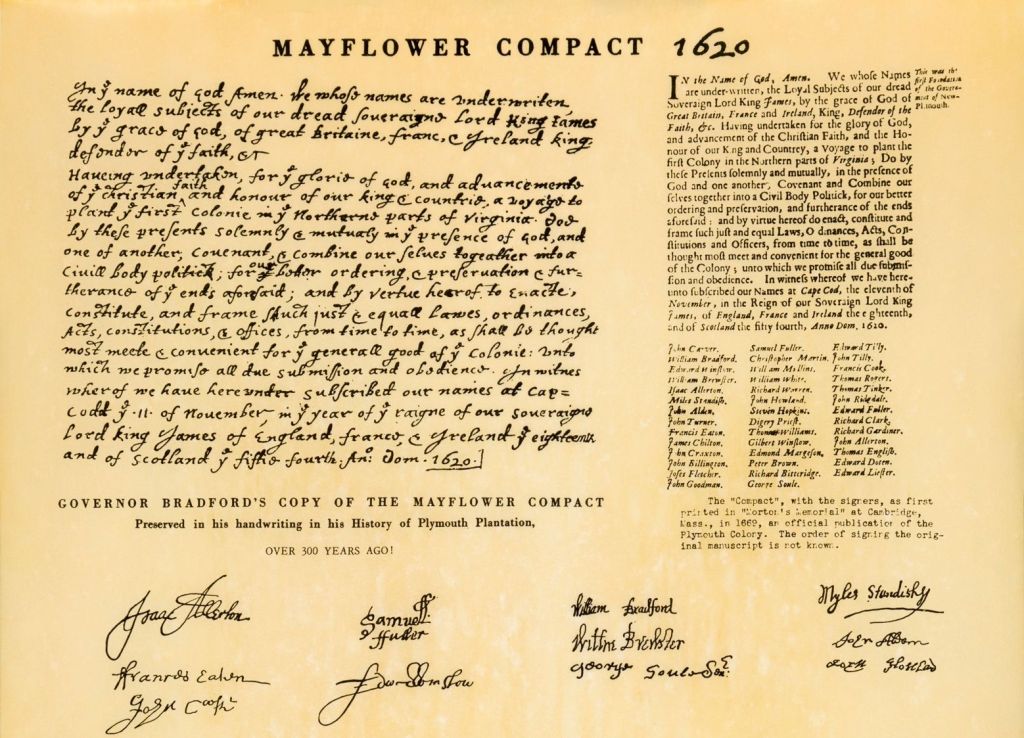 MAYFLOWER COMPACT 1620
In yͤ name of god Amen. We whose names are underwriten,
the loyall subjects of our dread soveraigne Lord King James
by yͤ grace of god, of great Britaine, franc, & Ireland king,
defendor of yͤ faith, &c
Haveing undertaken, for yͤ glorie of god, and advancemente
of yͤ christian faith and honour of our king & countrie, a voyage to
plant yͤ first colonie in yͤ Northerne parts of Virginia. Doe
by these presents solemnly & mutualy in yͤ presence of god, and
one of another, covenant, & combine our selves togeather into a
Civill body politick; for our better ordering, & preservation & fur-
therance of yͤ ends aforesaid; and by vertue hearof to enacte,
constitute, and frame such just & equall lawes, ordinances,
Acts, constitutions, & offices, from time to time, as shall be thought
most meete & convenient for yͤ generall good of yͤ colonie: unto
which we promise all due submission and obedience. In witnes
wherof we have hereunder subscribed our names at Cap-
Codd yͤ ·11· of November, in yͤ year of yͤ raigne of our soveraigne
Lord king James of England, france, & Ireland yͤ eighteenth
and of Scotland yͤ fiftie fourth. Anº: Dom. 1620.]
GOVERNOR BRADFORD'S COPY OF THE MAYFLOWER COMPACT
Preserved in his handwriting in his History of Plymouth Plantation,
OVER 300 YEARS AGO!
IN the Name of God, Amen. We whose Names
are under-written, the Loyal Subjects of our dread
Soveraign Lord King James, by the grace of God of
Great Britain, France and Ireland, King, Defendor of the
Faith, &c. Having undertaken for the glory of God,
and advancement of the Christian Faith, and the Ho-
nour of our King and Countrey, a Voyage to plant the
first Colony in the Northern parts of Virginia; Do by
these Presents solemnly and mutually, in the presence of
God and one another, Covenant and Combine our
selves together into a Civil Body Politick, for our better
ordering and preservation, and furtherance of the ends
aforesaid: and by virtue hereof do enact, constitute and
frame such just and equal Laws, Ordinances, Acts, Con-
stitutions and Officers, from time to time, as shall be
thought most meet and convenient for the general good
of the Colony; unto which we promise all due submis-
sion and obedience. In witness whereof we have here-
unto subscribed our Names at Cape Cod, the eleventh of
November, in the Reign of our Soveraign Lord King
James, of England, France and Ireland the eighteenth,
and of Scotland the fifty fourth, Anno Dom. 1620.
This was the
first Foundation
of the Govern-
ment of New-
Plimouth.
John Carver. Samuel Fuller. Edward Tilly.
William Bradford. Christopher Martin. John Tilly.
Edward Winslow. William Mullins. Francis Cook.
William Brewster. William White. Thomas Rogers.
Isaac Allerton. Richard Warren. Thomas Tinker.
Miles Standish. John Howland. John Ridgdale.
John Alden. Steven Hopkins. Edward Fuller.
John Turner. Digery Priest. Richard Clark.
Francis Eaton. Thomas Williams. Richard Gardiner.
James Chilton. Gilbert Winslow. John Allerton.
John Craxton. Edmond Margeson. Thomas English.
John Billington. Peter Brown. Edward Doten.
Joses Fletcher. Richard Bitteridge. Edward Liester.
John Goodman. George Soule.
The "Compact", with the signers, as first
printed in "Morton's Memorial" at Cambridge,
Mass., in 1669, an official publication of the
Plymouth Colony. The order of signing the orig-
inal manuscript is not known.
Isaac Allerton
Frances Eaten
John Cooke
Samuell
ffuller
Edw: Winslow
William Bradford
Willm Brewster
George Soule Senʳ:
Myles Standish
John Alden